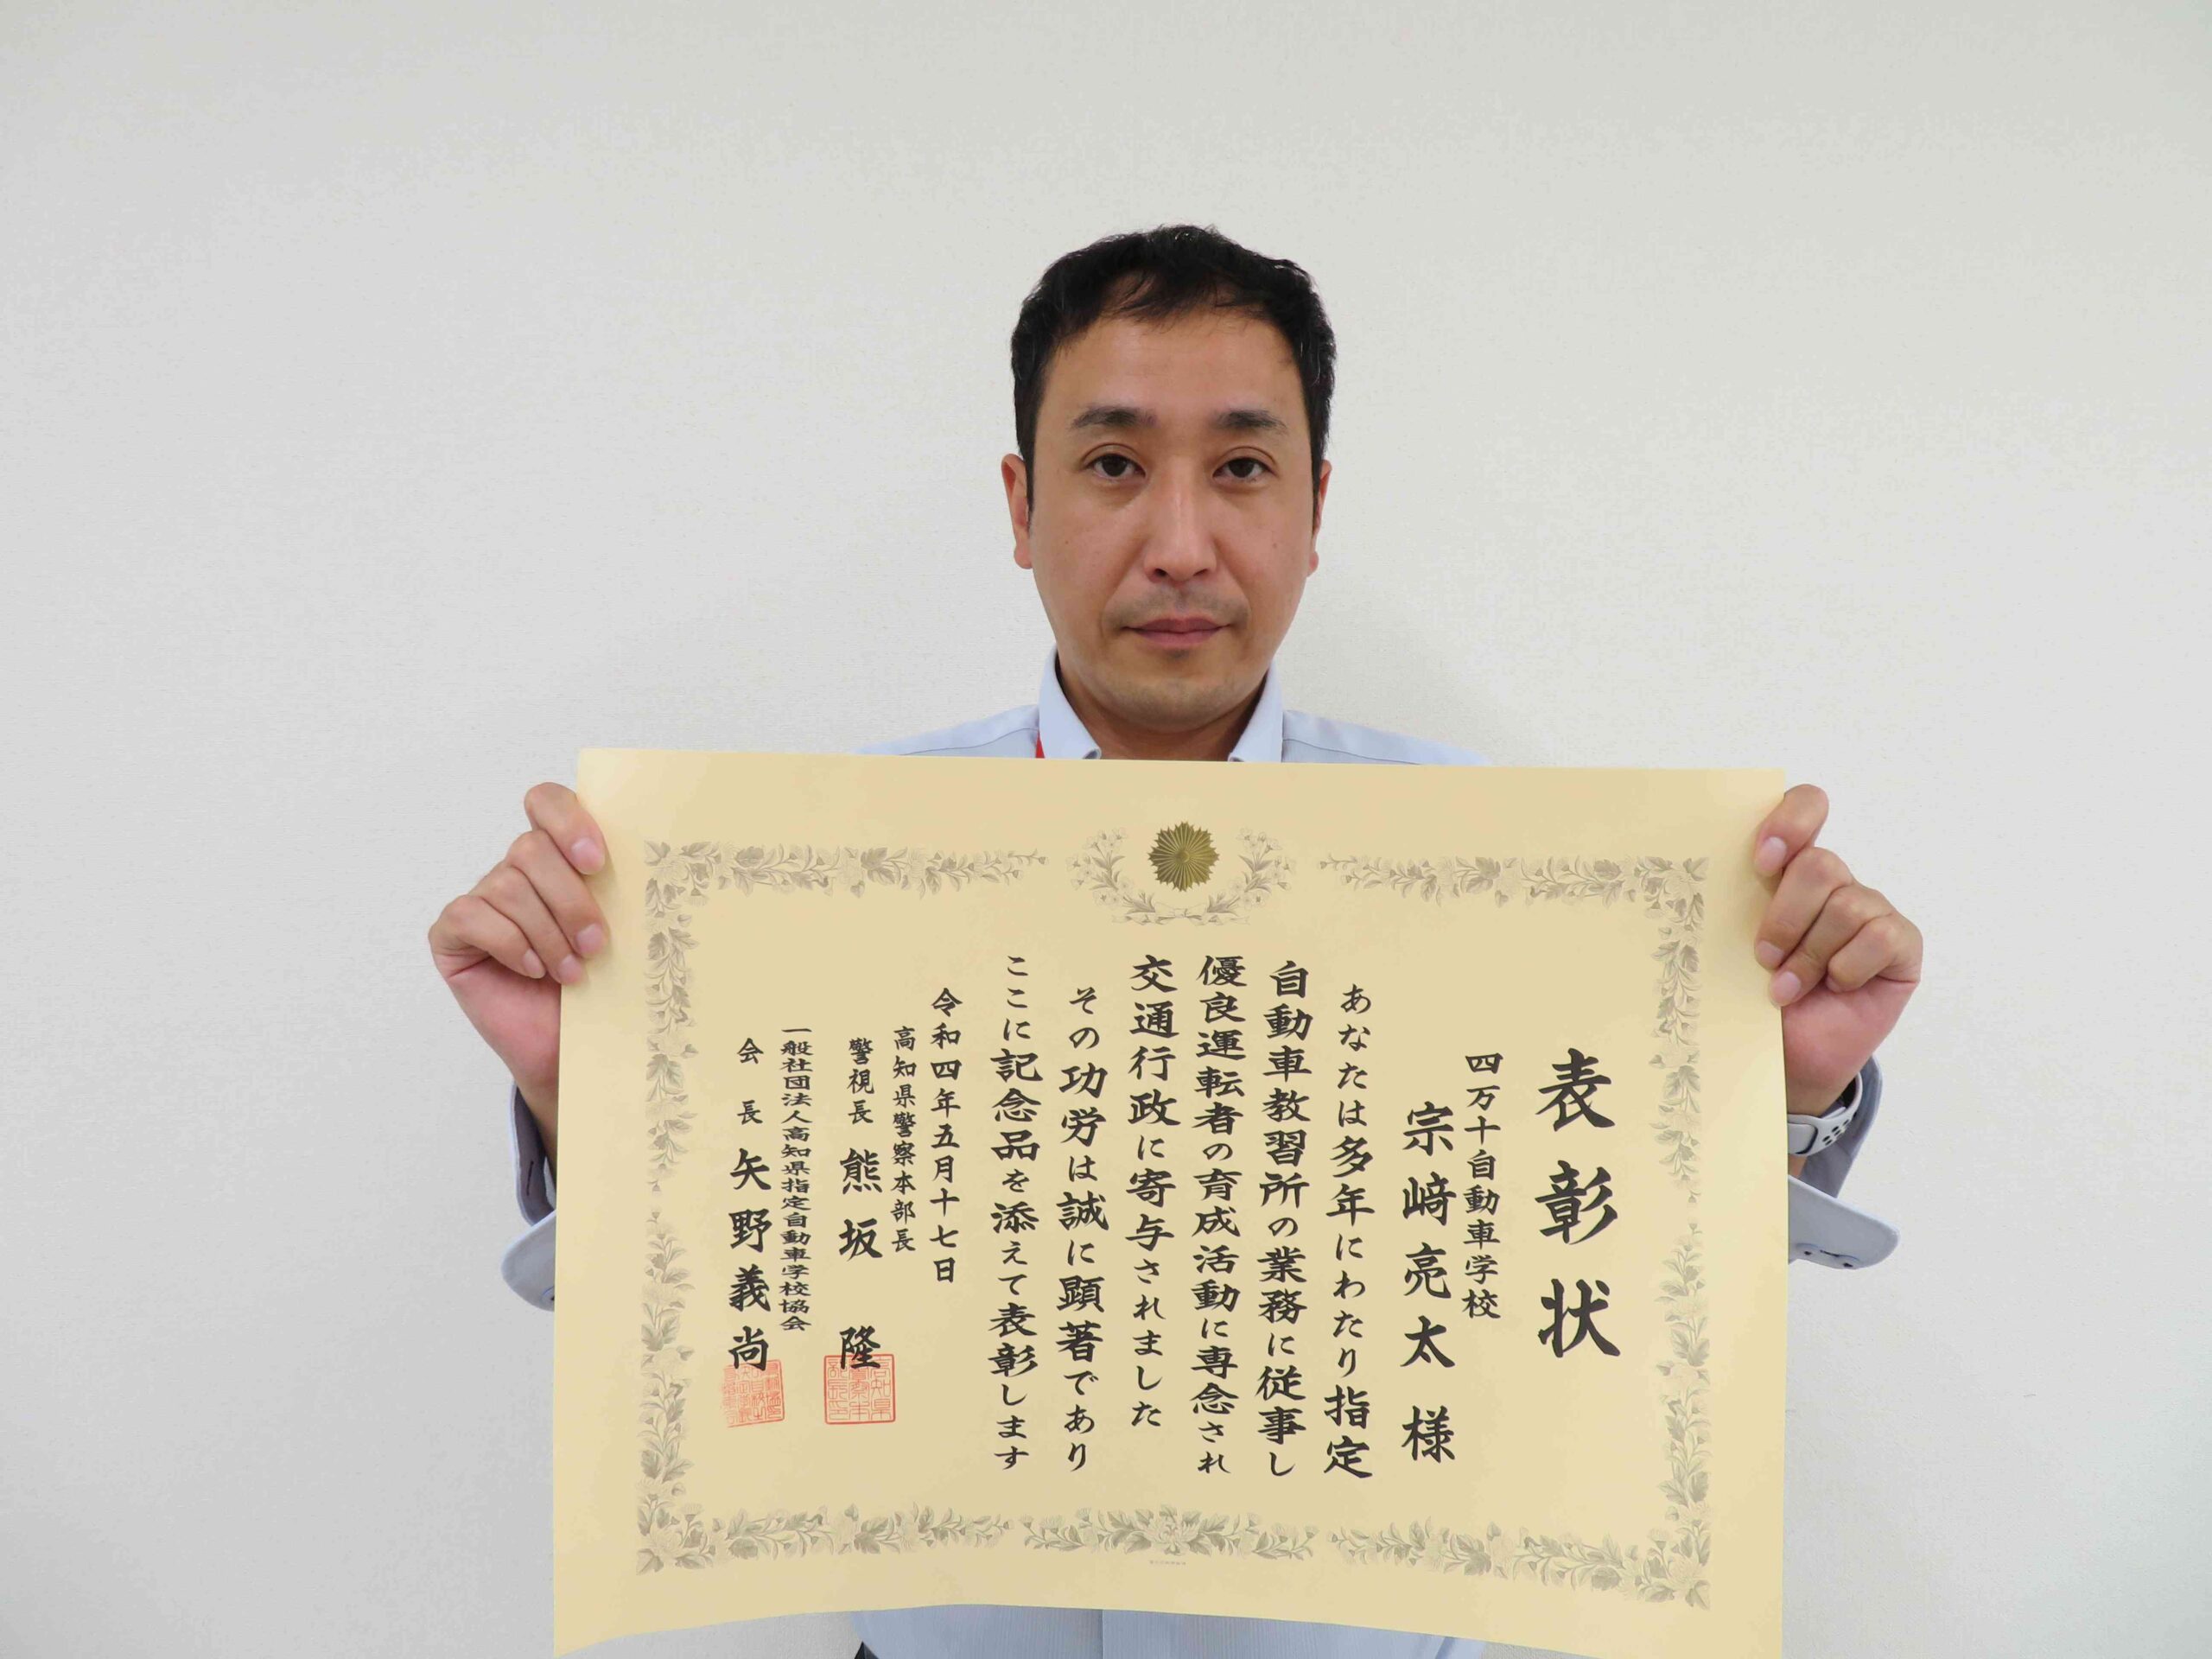 表彰状
四万十自動車学校
宗﨑亮太様
あなたは多年にわたり指定
自動車教習所の業務に従事し
優良運転者の育成活動に専念され
交通行政に寄与されました
その功労は誠に顕著であり
ここに記念品を添えて表彰します
令和四年五月十七日
高知県警察本部長
警視長 熊坂 隆
一般社団法人高知県指定自動車学校協会
会長 矢野義尚